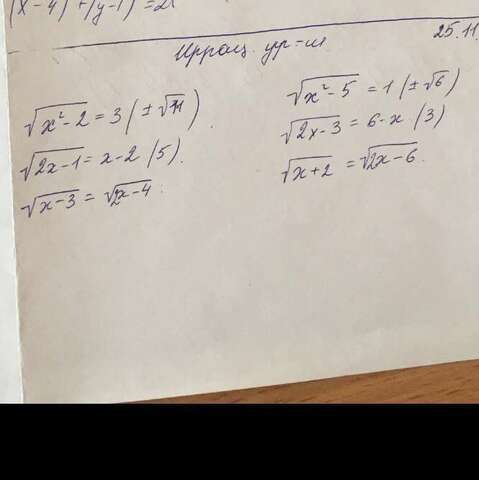 (x-4) + (y-1) = 21
25.11
Ирроц. ур-ия
√x²-2 = 3 (±√11)
√2x-1 = x-2 (5)
√x-3 = √2x-4
√x²-5 = 1 (±√6)
√2x-3 = 6-x (3)
√x+2 = √2x-6